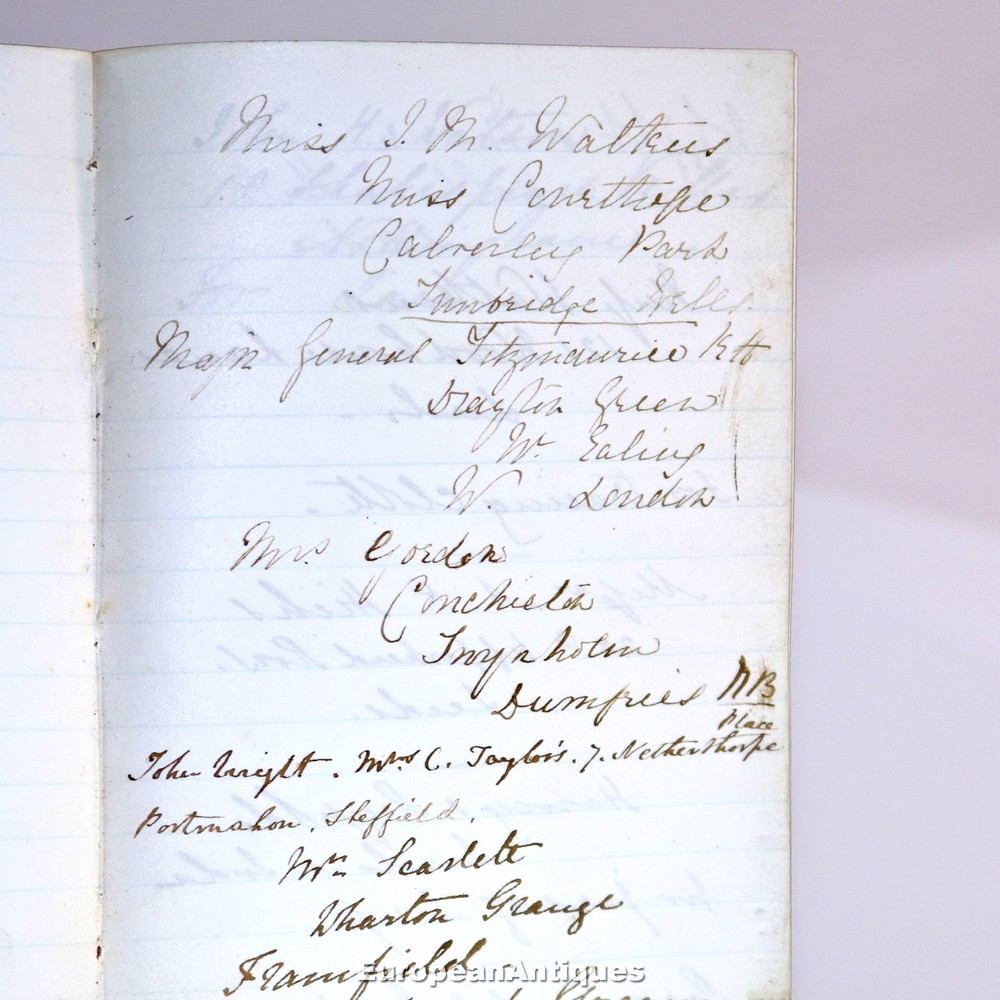 Miss J. M. Watkins
Miss Courthope
Calverley Park
Tunbridge Wells.
Major General Fitzmaurice KH
Drayton Green
W. Ealing
W. London
Mrs. Gordon
Conchieton
Twynholm
Dumfries NB
Place
John Wright. Mrs C. Taylor's. 7. Netherthorpe
Portmahon. Sheffield.
Mrs Scarlett
Wharton Grange
Framfield
EuropeanAntiques